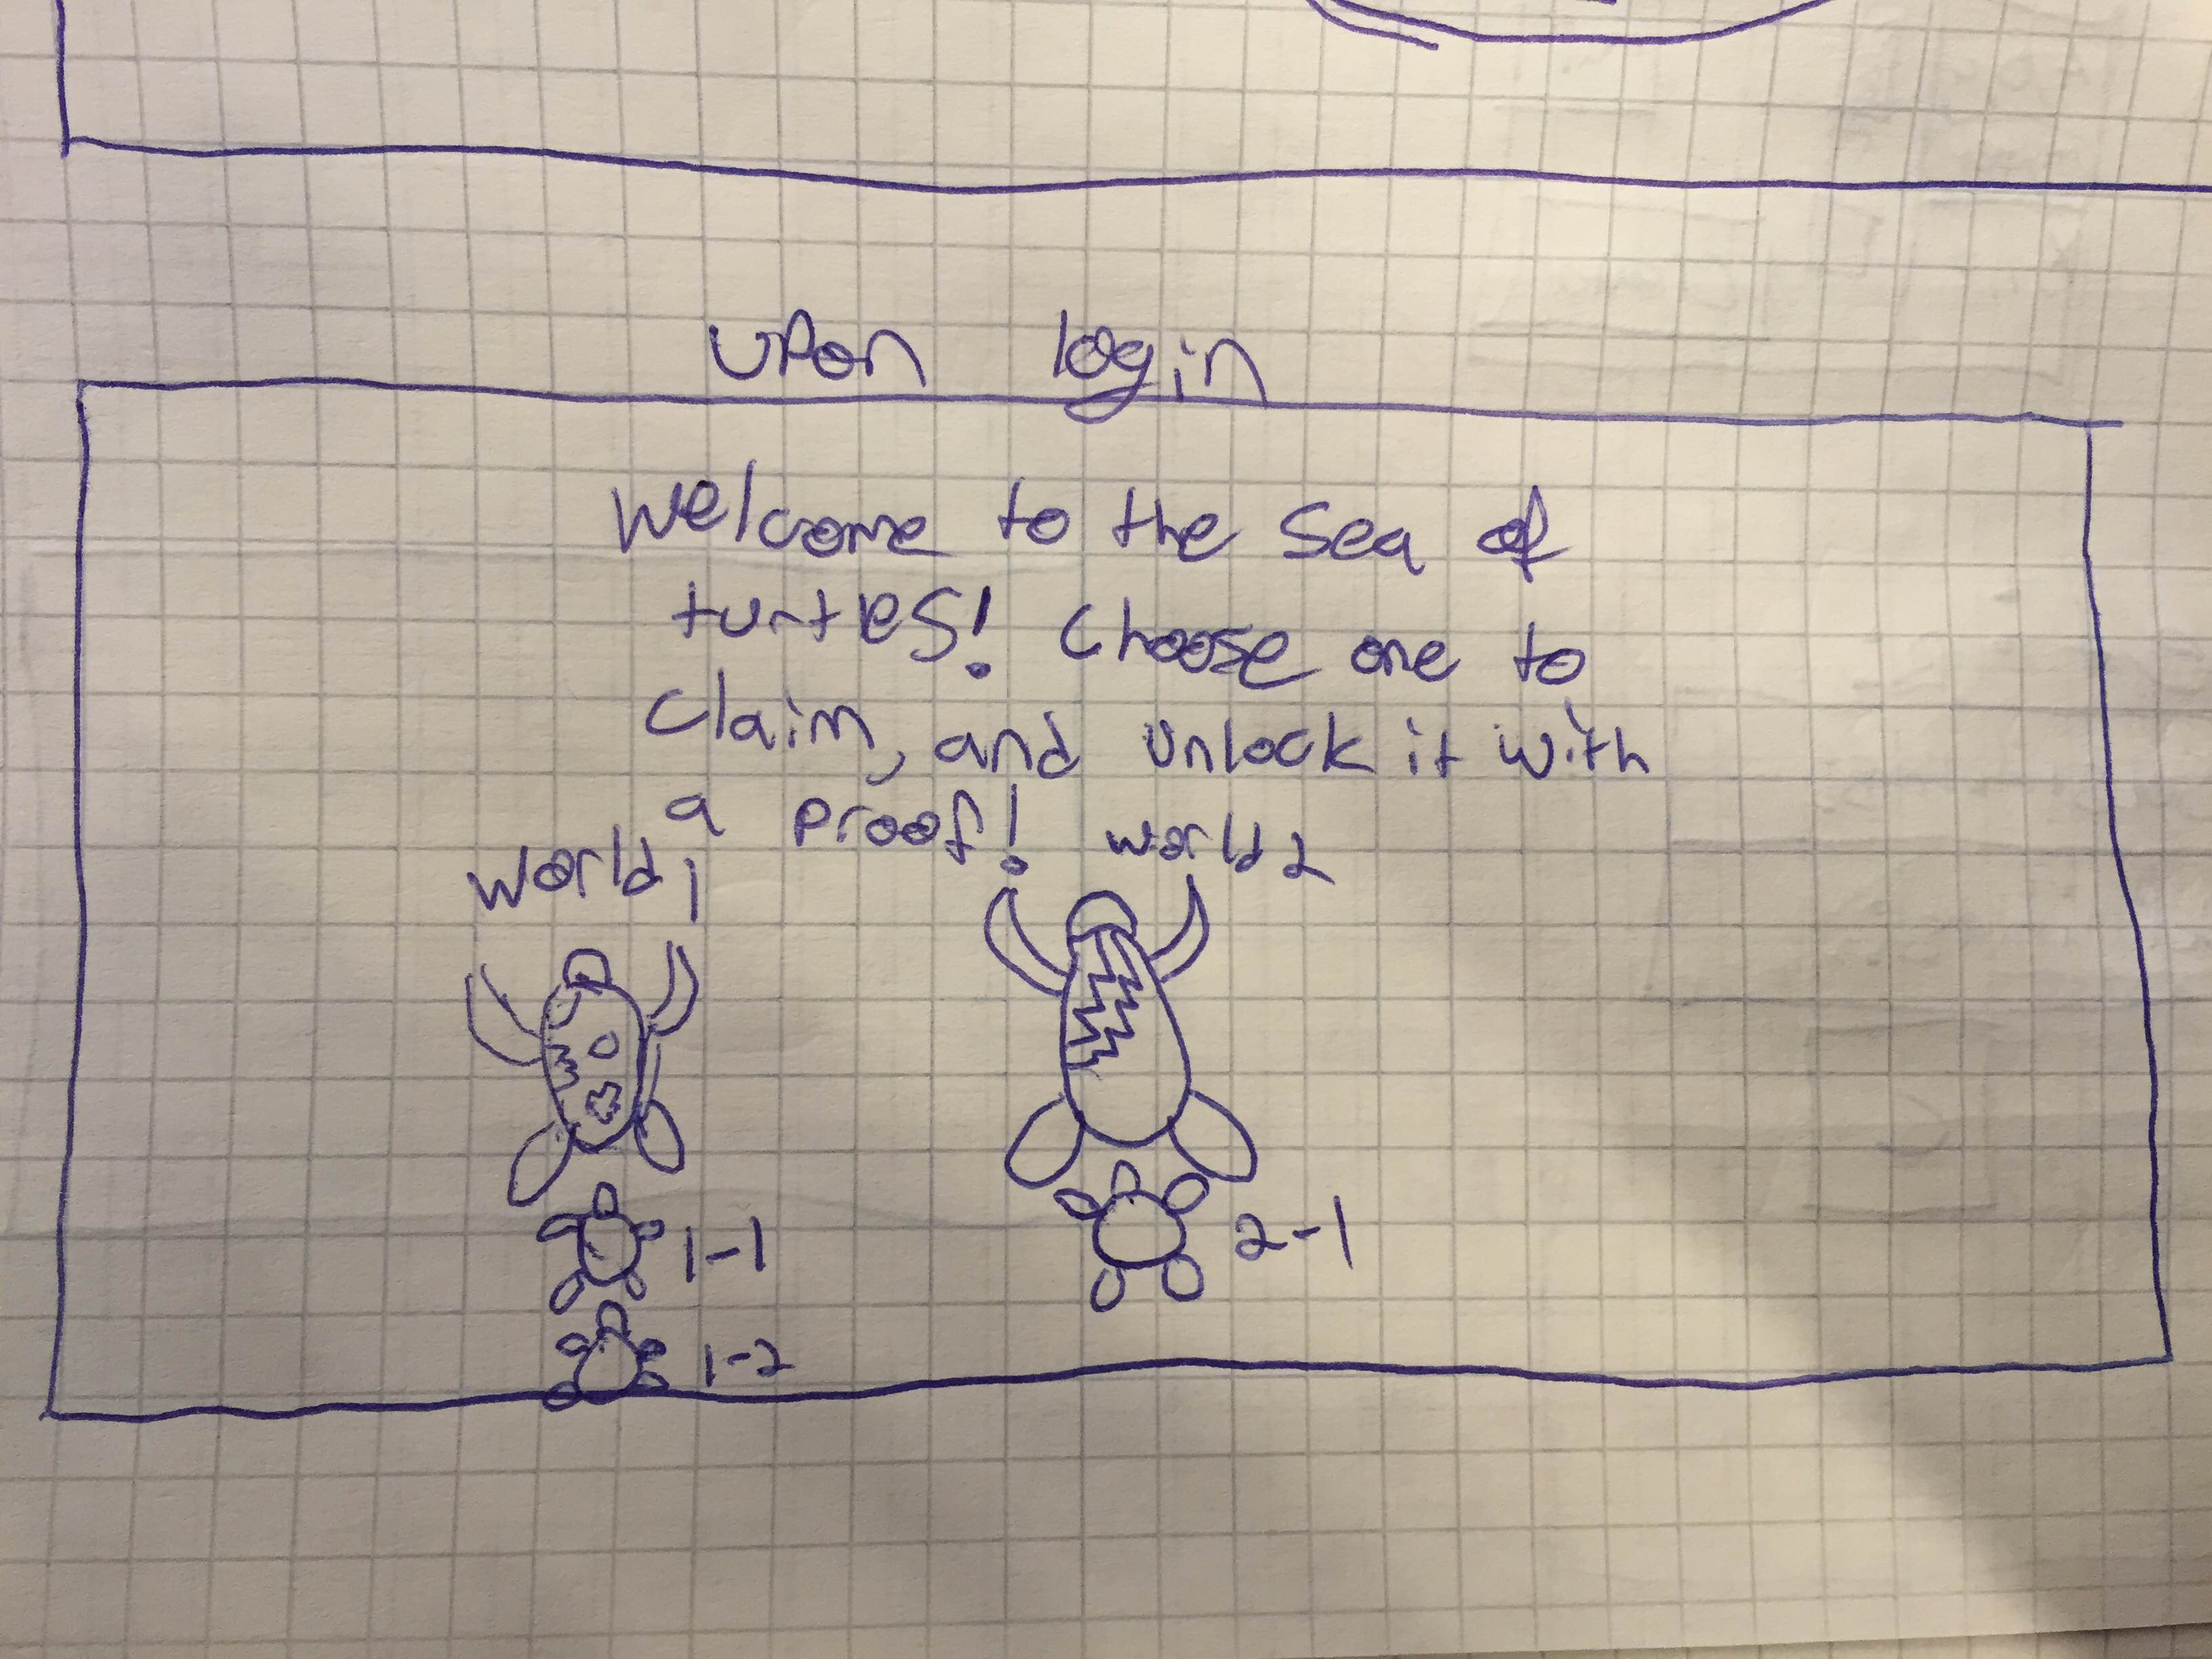 upon log in
Welcome to the sea of
turtes! choose one to
claim, and unlock it with
a proof!
world 1
world 2
1-1
2-1
1-2